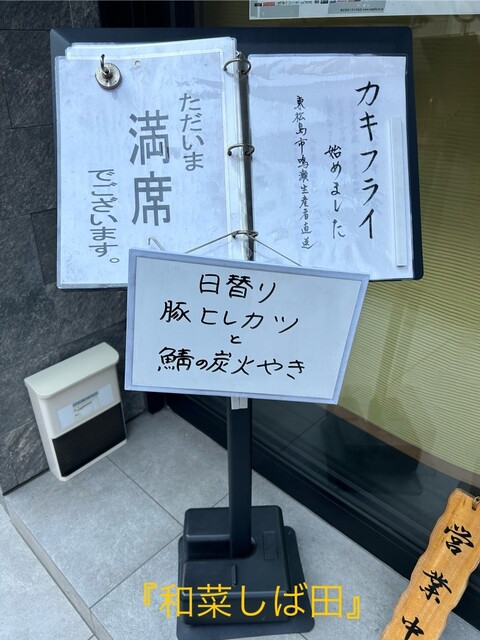 カキフライ
始めました
東松島市鳴瀬生産者直送
ただいま
満席
でございます。
日替り
豚ヒレカツ
と
鯖の炭火やき
営業中
『和菜しば田』